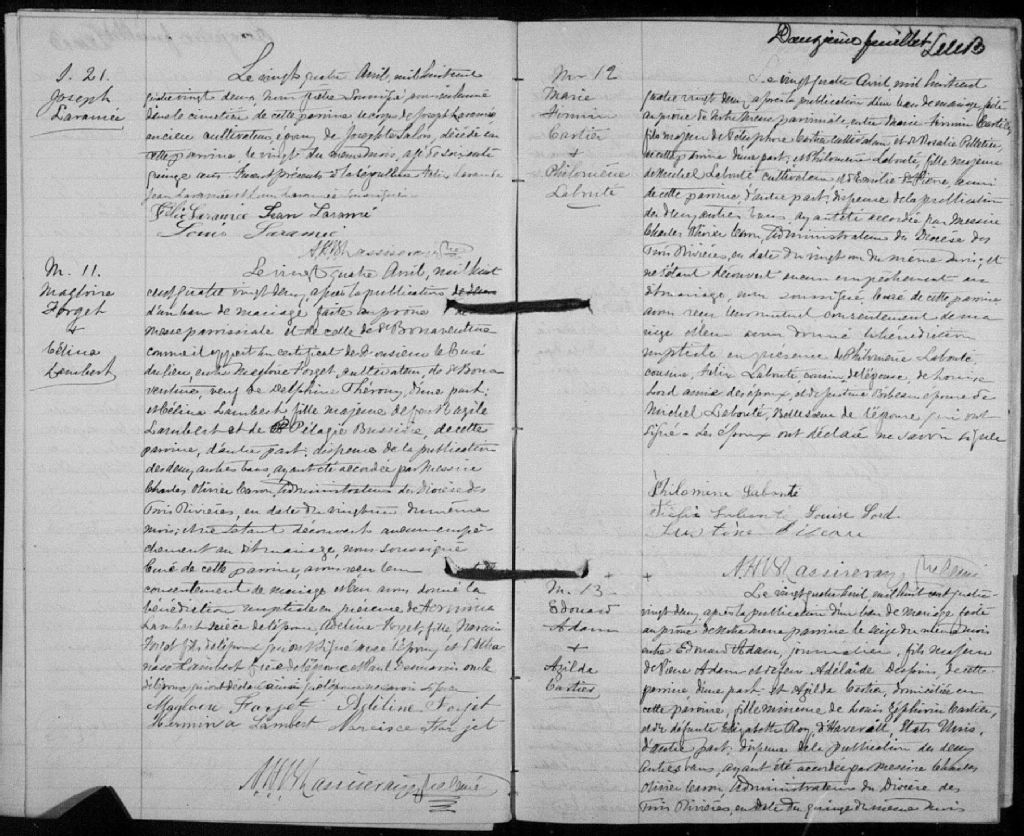 S. 21.
Joseph
Laramée
Le vingt quatre Avril, mil huit cent
quatre vingt deux, nous prêtre soussigné, avons inhumé
dans le cimetière de cette paroisse le corps de Joseph Laramée
ancien cultivateur, époux de Josephte Salois, décédé en
cette paroisse, le vingt du même mois, âgé de soixante
quinze ans. Furent présents à la sépulture Félix Laramée
Jean Laramée et Louis Laramée soussignés
Félix Laramée Jean Laramé
Louis Laramée
A.H.B. Lassiseraye Ptre
M. 11.
Magloire
Forget
+
Célina
Lambert
Le vingt quatre Avril, mil huit
cent quatre vingt deux, après la publication
d'un ban de mariage faite au prône de
messe paroissiale et de celle de St Bonaventure
comme il appert au certificat de Monsieur le Curé
du lieu, entre Magloire Forget, cultivateur, de St Bona
venture, veuf de Delphine Théroux, d'une part;
et Célina Lambert fille majeure de feu Bazile
Lambert et de Pélagie Bussière, de cette
paroisse, d'autre part; dispense de la publication
des deux autres bans, ayant été accordée par Messire
Charles Olivier Caron, Administrateur du Diocèse des
Trois Rivières, en date du vingt un du même
mois; et ne s'étant découvert aucun empê-
chement au dit mariage, nous soussigné
Curé de cette paroisse, avons reçu leur
consentement de mariage et leur avons donné la
bénédiction nuptiale en présence de Hermina
Lambert nièce de l'épouse, Adéline Forget, fille, Narcisse
Forget fils de l'époux qui ont signé avec l'époux, et d'Atha
nase Lambert frère de l'épouse et Paul Desmarais oncle
de l'épouse qui ont déclaré ainsi que l'épouse ne savoir signer
Magloire Forget Adéline Forjet
Hermina Lambert Narcisse Forjet
A.H.B. Lassiseraye Ptre Curé
Deuxième feuillet L.E.B.
M. 12
Marie
Firmin
Cartier
+
Philomène
Labonté
Le vingt quatre Avril, mil huit cent
quatre vingt deux, après la publication d'un ban de mariage, faite
au prône de notre messe paroissiale, entre Marie Firmin Cartier,
fils majeur de Télesphore Cartier cultivateur et de Rosalie Pelletier,
de cette paroisse d'une part; et Philomène Labonté, fille majeure
de Michel Labonté cultivateur et d'Emilie St Pierre, aussi
de cette paroisse, d'autre part; dispense de la publication
des deux autres bans, ayant été accordée par Messire
Charles Olivier Caron, Administrateur du Diocèse des
Trois Rivières, en date du vingt un du même mois; et
ne s'étant découvert aucun empêchement au
dit mariage, nous soussigné, Curé de cette paroisse
avons reçu leur mutuel consentement de ma
riage et leur avons donné la bénédiction
nuptiale en présence de Philomène Labonté
cousine, Félix Labonté, cousin, de l'épouse, de Louise
Lord amie des époux, et de Justine Bibeau épouse de
Michel Labonté, Belle sœur de l'épouse, qui ont
signé. Les époux ont déclaré ne savoir signer
Philomène Labonté
Félix Labonté Louise Lord
Justine Bibeau
A.H.B. Lassiseraye Ptre Curé
M. 13
Edouard
Adam
+
Azilda
Cartier
Le vingt quatre Avril mil huit cent quatre
vingt deux, après la publication d'un ban de mariage faite
au prône de notre messe paroissiale le seize du même mois
entre Edouard Adam, journalier, fils majeur
de Pierre Adam et de feu Adélaïde Despins, de cette
paroisse d'une part; et Azilda Cartier, domiciliée en
cette paroisse, fille mineure de Louis Zéphirin Cartier,
et de défunte Elizabeth Roy, d'Haverill, Etats Unis,
d'autre part; dispense de la publication des deux
autres bans, ayant été accordée par Messire Charles
Olivier Caron, Administrateur du Diocèse des
Trois Rivières, en date du quinze du même mois